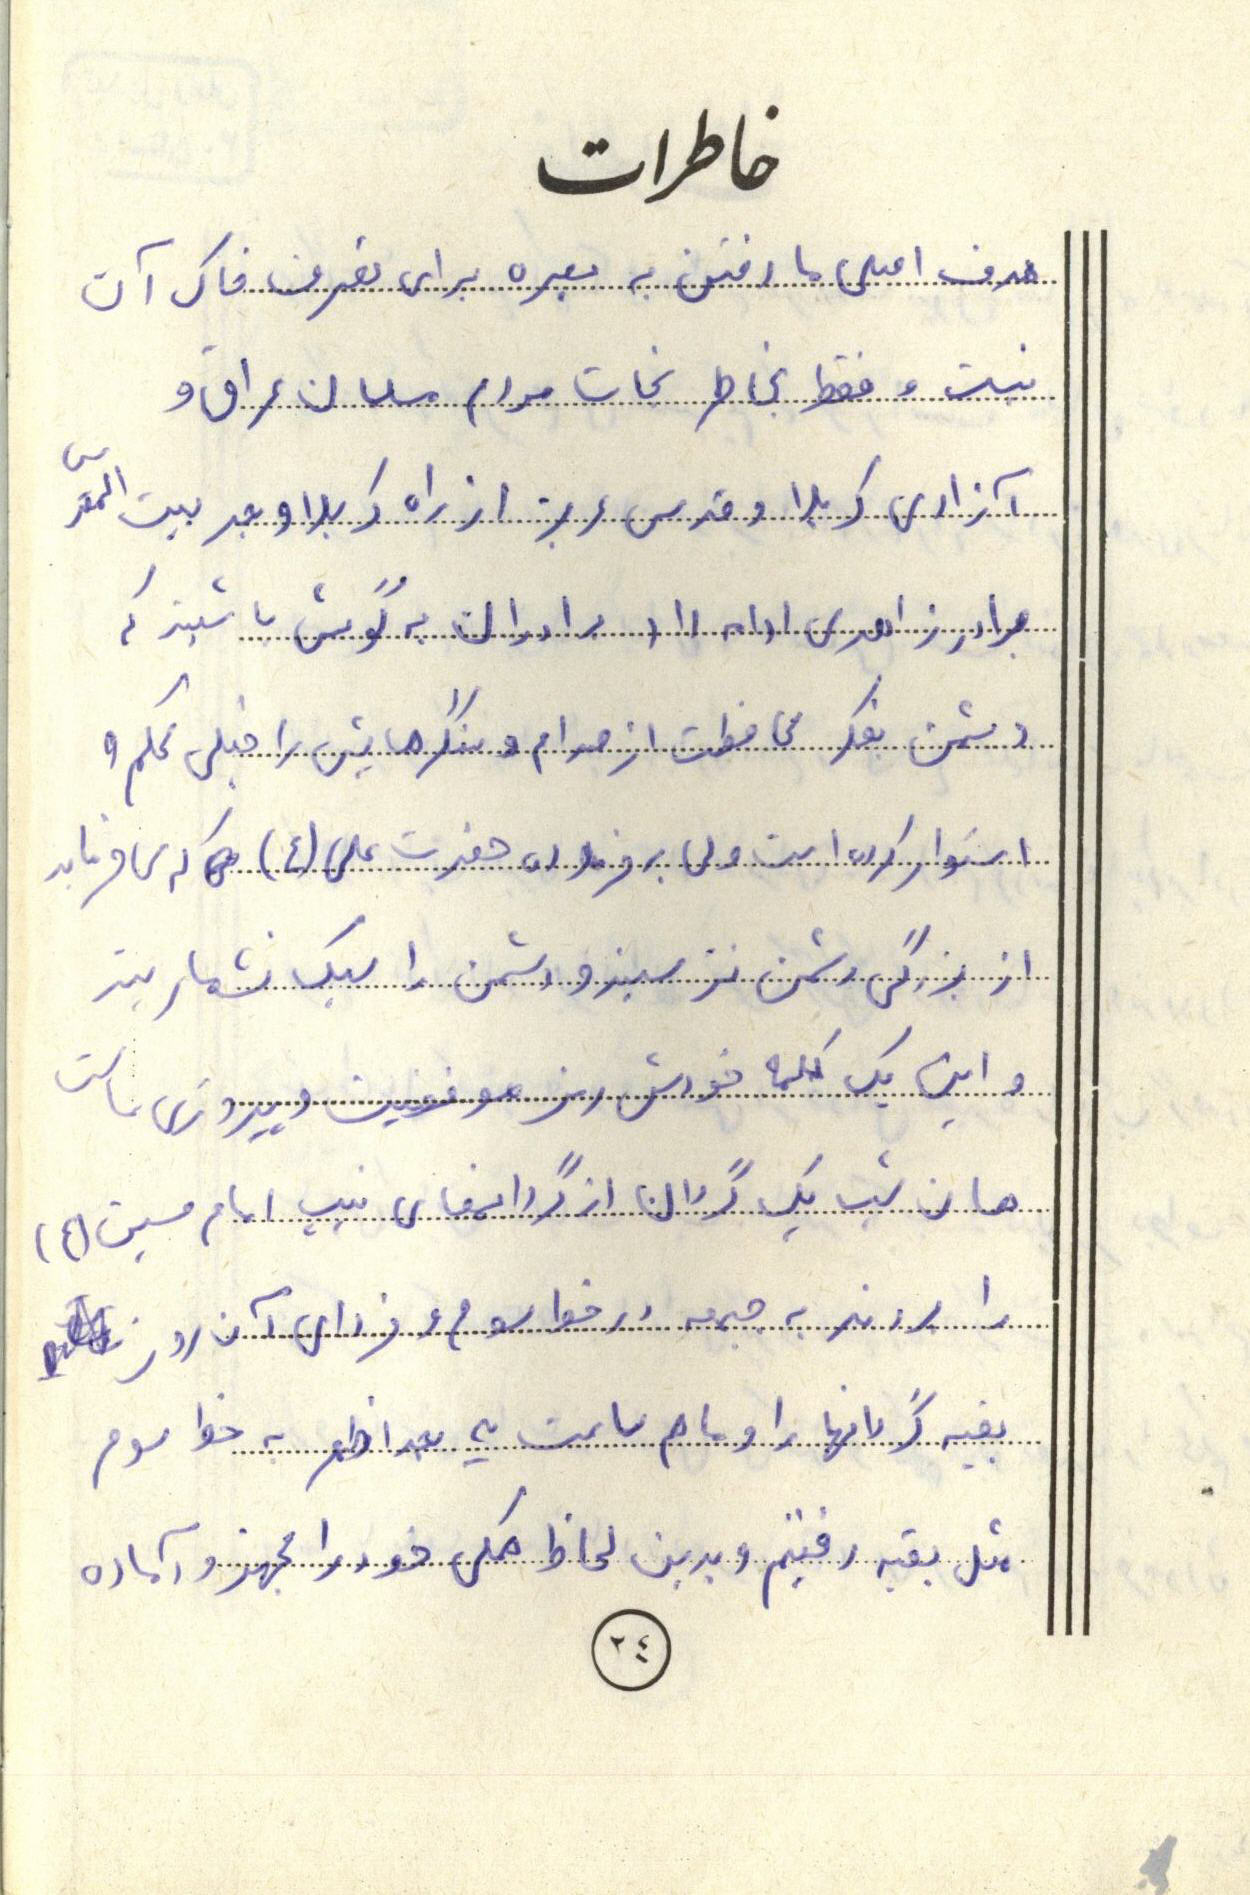 خاطرات
هدف اصلی ما رفتن به بصره برای تصرف خاک آن
نیست و فقط بخاطر نجات مردم مسلمان عراق و
آزادی کربلا و قدس عزیز از راه کربلا و بعد بیت المقدس
برادر زاهدی ادامه داد برادران به گوش باشید که
دشمن بفکر محافظت از صدام و سنگرهایش را خیلی محکم و
استوار کرده است ولی به فرموده حضرت علی (ع) که می فرماید
از بزرگی دشمن نترسید و دشمن را سبک نشمارید
و این یک کلمه خودش رمز موفقیت و پیروزی ماست
همان شب یک گردان از گردانهای تیپ امام حسین (ع)
را بردند به جبهه در خط سوم و فردای آن روز
بقیه گردانها را و ما هم ساعت بعد از ظهر به خط سوم
مثل بقیه رفتیم و بدین لحاظ همگی خود را مجهز و آماده
۲٤